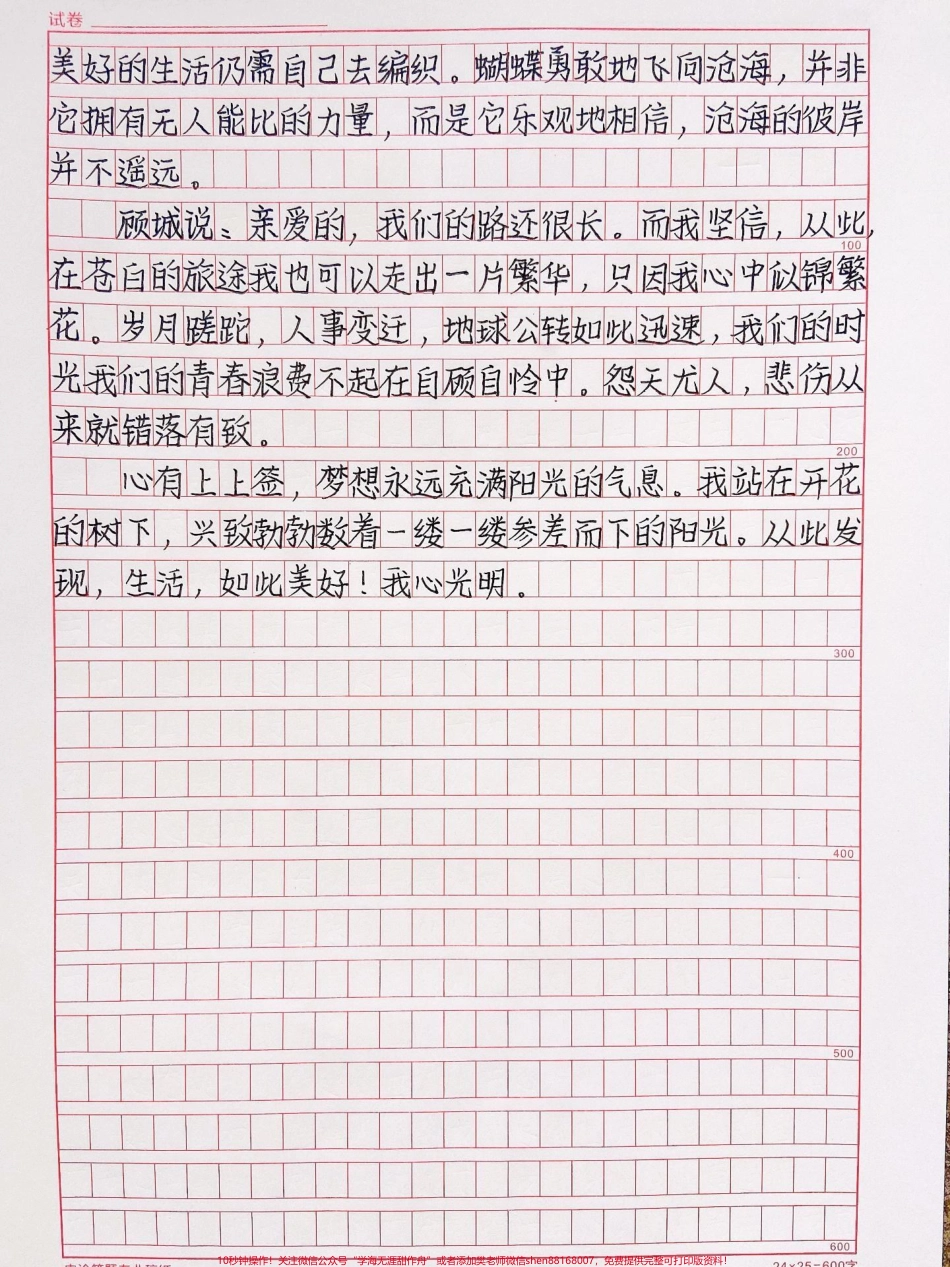 试卷
美好的生活仍需自己去编织。蝴蝶勇敢地飞向沧海，并非
它拥有无人能比的力量，而是它乐观地相信，沧海的彼岸
并不遥远。
顾城说：亲爱的，我们的路还很长。而我坚信，从此，
100
在苍白的旅途我也可以走出一片繁华，只因我心中似锦繁
花。岁月蹉跎，人事变迁，地球公转如此迅速，我们的时
光我们的青春浪费不起在自顾自怜中。怨天尤人，悲伤从
来就错落有致。
200
心有上上签，梦想永远充满阳光的气息。我站在开花
的树下，兴致勃勃数着一缕一缕参差而下的阳光。从此发
现，生活，如此美好！我心光明。
300
400
500
600
10秒钟操作！关注微信公众号“学海无涯甜作舟”或者添加樊老师微信shen88168007，免费提供完整可打印版资料！
24×25=600字